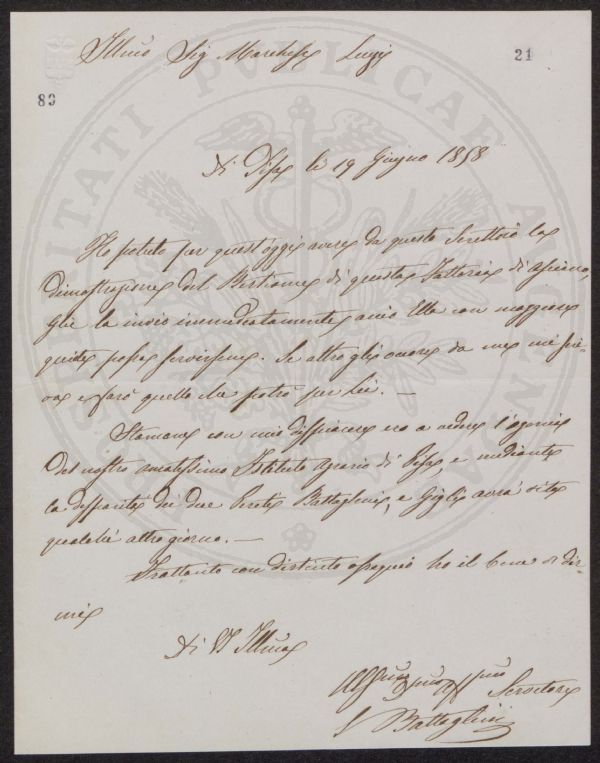 Illmo Sig Marchese Luigi
21
80
Di Pisa li 19 Giugno 1858
Ho potuto per quest'oggi avere da questo Scrittoio la
dimostrazione del Bestiame di questa Fattoria di
Glie la invio immediatamente, acciò Ella con maggiore
quiete possa servirsene. Se altro gli occorre da me mi scri-
va e farò quello che potrò per Lei. —
Stamane con mio dispiacere vo a vedere l'agonia
del nostro amatissimo Istituto Agrario di Pisa e mediante
la disparità dei due Periti Battaglini, e Gigli avrà vita
qualche altro giorno. —
Frattanto con distinto ossequio ho il bene di dir-
mi
Di VS Illma
Servitore
Battaglini
ASPERITATI PUBLICAE AUGENDAE